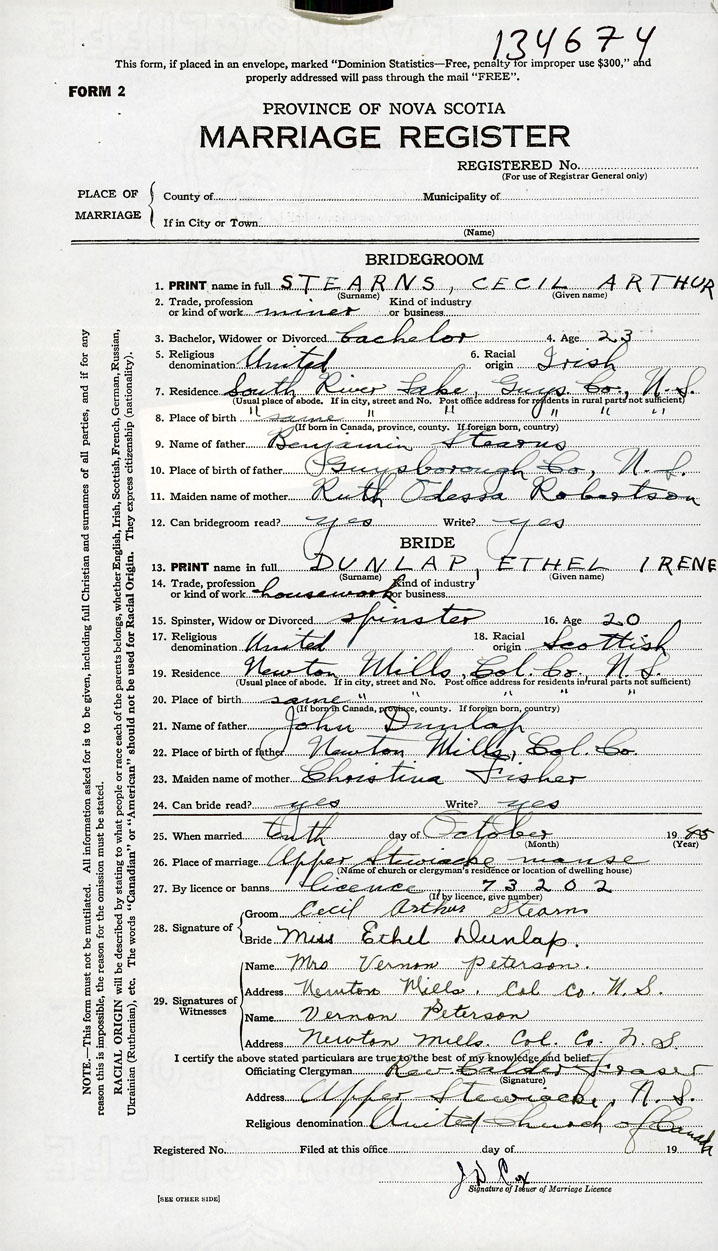 134674
This form, if placed in an envelope, marked "Dominion Statistics—Free, penalty for improper use $300," and
properly addressed will pass through the mail "FREE".
FORM 2
PROVINCE OF NOVA SCOTIA
MARRIAGE REGISTER
REGISTERED No.
(For use of Registrar General only)
PLACE OF MARRIAGE
County of Municipality of
If in City or Town
(Name)
BRIDEGROOM
1. PRINT name in full STEARNS, CECIL ARTHUR
(Surname) (Given name)
2. Trade, profession or kind of work miner Kind of industry or business
3. Bachelor, Widower or Divorced bachelor 4. Age 23
5. Religious denomination United 6. Racial origin Irish
7. Residence South River Lake, Guys. Co., N.S.
(Usual place of abode. If in city, street and No. Post office address for residents in rural parts not sufficient)
8. Place of birth " same " " " " "
(If born in Canada, province, county. If foreign born, country)
9. Name of father Benjamin Stearns
10. Place of birth of father Guysborough Co., N.S.
11. Maiden name of mother Ruth Odessa Robertson
12. Can bridegroom read? yes Write? yes
BRIDE
13. PRINT name in full DUNLAP, ETHEL IRENE
(Surname) (Given name)
14. Trade, profession or kind of work housework Kind of industry or business
15. Spinster, Widow or Divorced spinster 16. Age 20
17. Religious denomination United 18. Racial origin Scottish
19. Residence Newton Mills, Col. Co., N.S.
(Usual place of abode. If in city, street and No. Post office address for residents in rural parts not sufficient)
20. Place of birth same " " " " "
(If born in Canada, province, county. If foreign born, country)
21. Name of father John Dunlap
22. Place of birth of father Newton Mills, Col. Co.
23. Maiden name of mother Christina Fisher
24. Can bride read? yes Write? yes
25. When married Tenth day of October 1945
(Month) (Year)
26. Place of marriage Upper Stewiacke manse
(Name of church or clergyman's residence or location of dwelling house)
27. By licence or banns licence, 73202
(If by licence, give number)
28. Signature of
Groom Cecil Arthur Stearns
Bride Miss Ethel Dunlap.
29. Signatures of Witnesses
Name Mrs Vernon Peterson.
Address Newton Mills. Col Co. N.S.
Name Vernon Peterson
Address Newton Mills. Col. Co. N.S.
I certify the above stated particulars are true to the best of my knowledge and belief.
Officiating Clergyman Rev. Calder Fraser
(Signature)
Address Upper Stewiacke, N.S.
Religious denomination United Church of Canada
Registered No. Filed at this office day of 19
J D Cox
Signature of Issuer of Marriage Licence
[SEE OTHER SIDE]
NOTE.—This form must not be mutilated. All information asked for is to be given, including full Christian and surnames of all parties, and if for any
reason this is impossible, the reason for the omission must be stated.
RACIAL ORIGIN will be described by stating to what people or race each of the parents belongs, whether English, Irish, Scottish, French, German, Russian,
Ukrainian (Ruthenian), etc. The words "Canadian" or "American" should not be used for Racial Origin. They express citizenship (nationality).